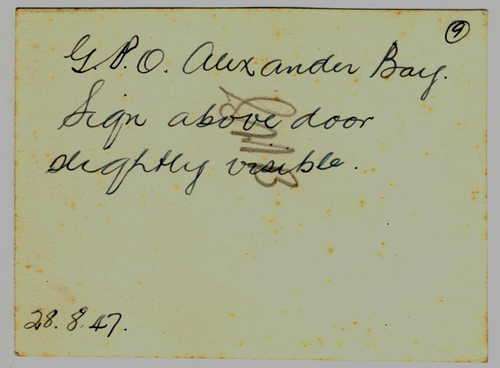 9
G.P.O. Alexander Bay.
Sign above door
slightly visible.
28.8.47.